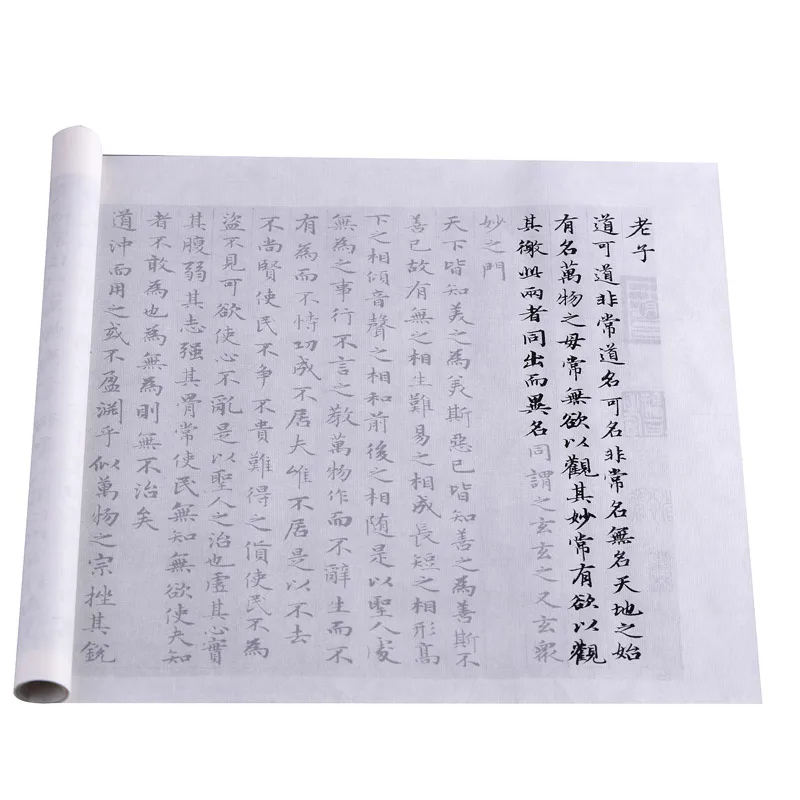 老子
道可道非常道名可名非常名無名天地之始
有名萬物之母常無欲以觀其妙常有欲以觀
其徼此兩者同出而異名同謂之玄玄之又玄衆
妙之門
天下皆知美之為美斯惡已皆知善之為善斯不
善已故有無之相生難易之相成長短之相形高
下之相傾音聲之相和前後之相随是以聖人處
無為之事行不言之教萬物作而不辭生而不
有為而不恃功成不居夫唯不居是以不去
不尚賢使民不争不貴難得之貨使民不為
盜不見可欲使心不亂是以聖人之治也虛其心實
其腹弱其志強其骨常使民無知無欲使夫知
者不敢為也為無為則無不治矣
道沖而用之或不盈淵乎似萬物之宗挫其銳